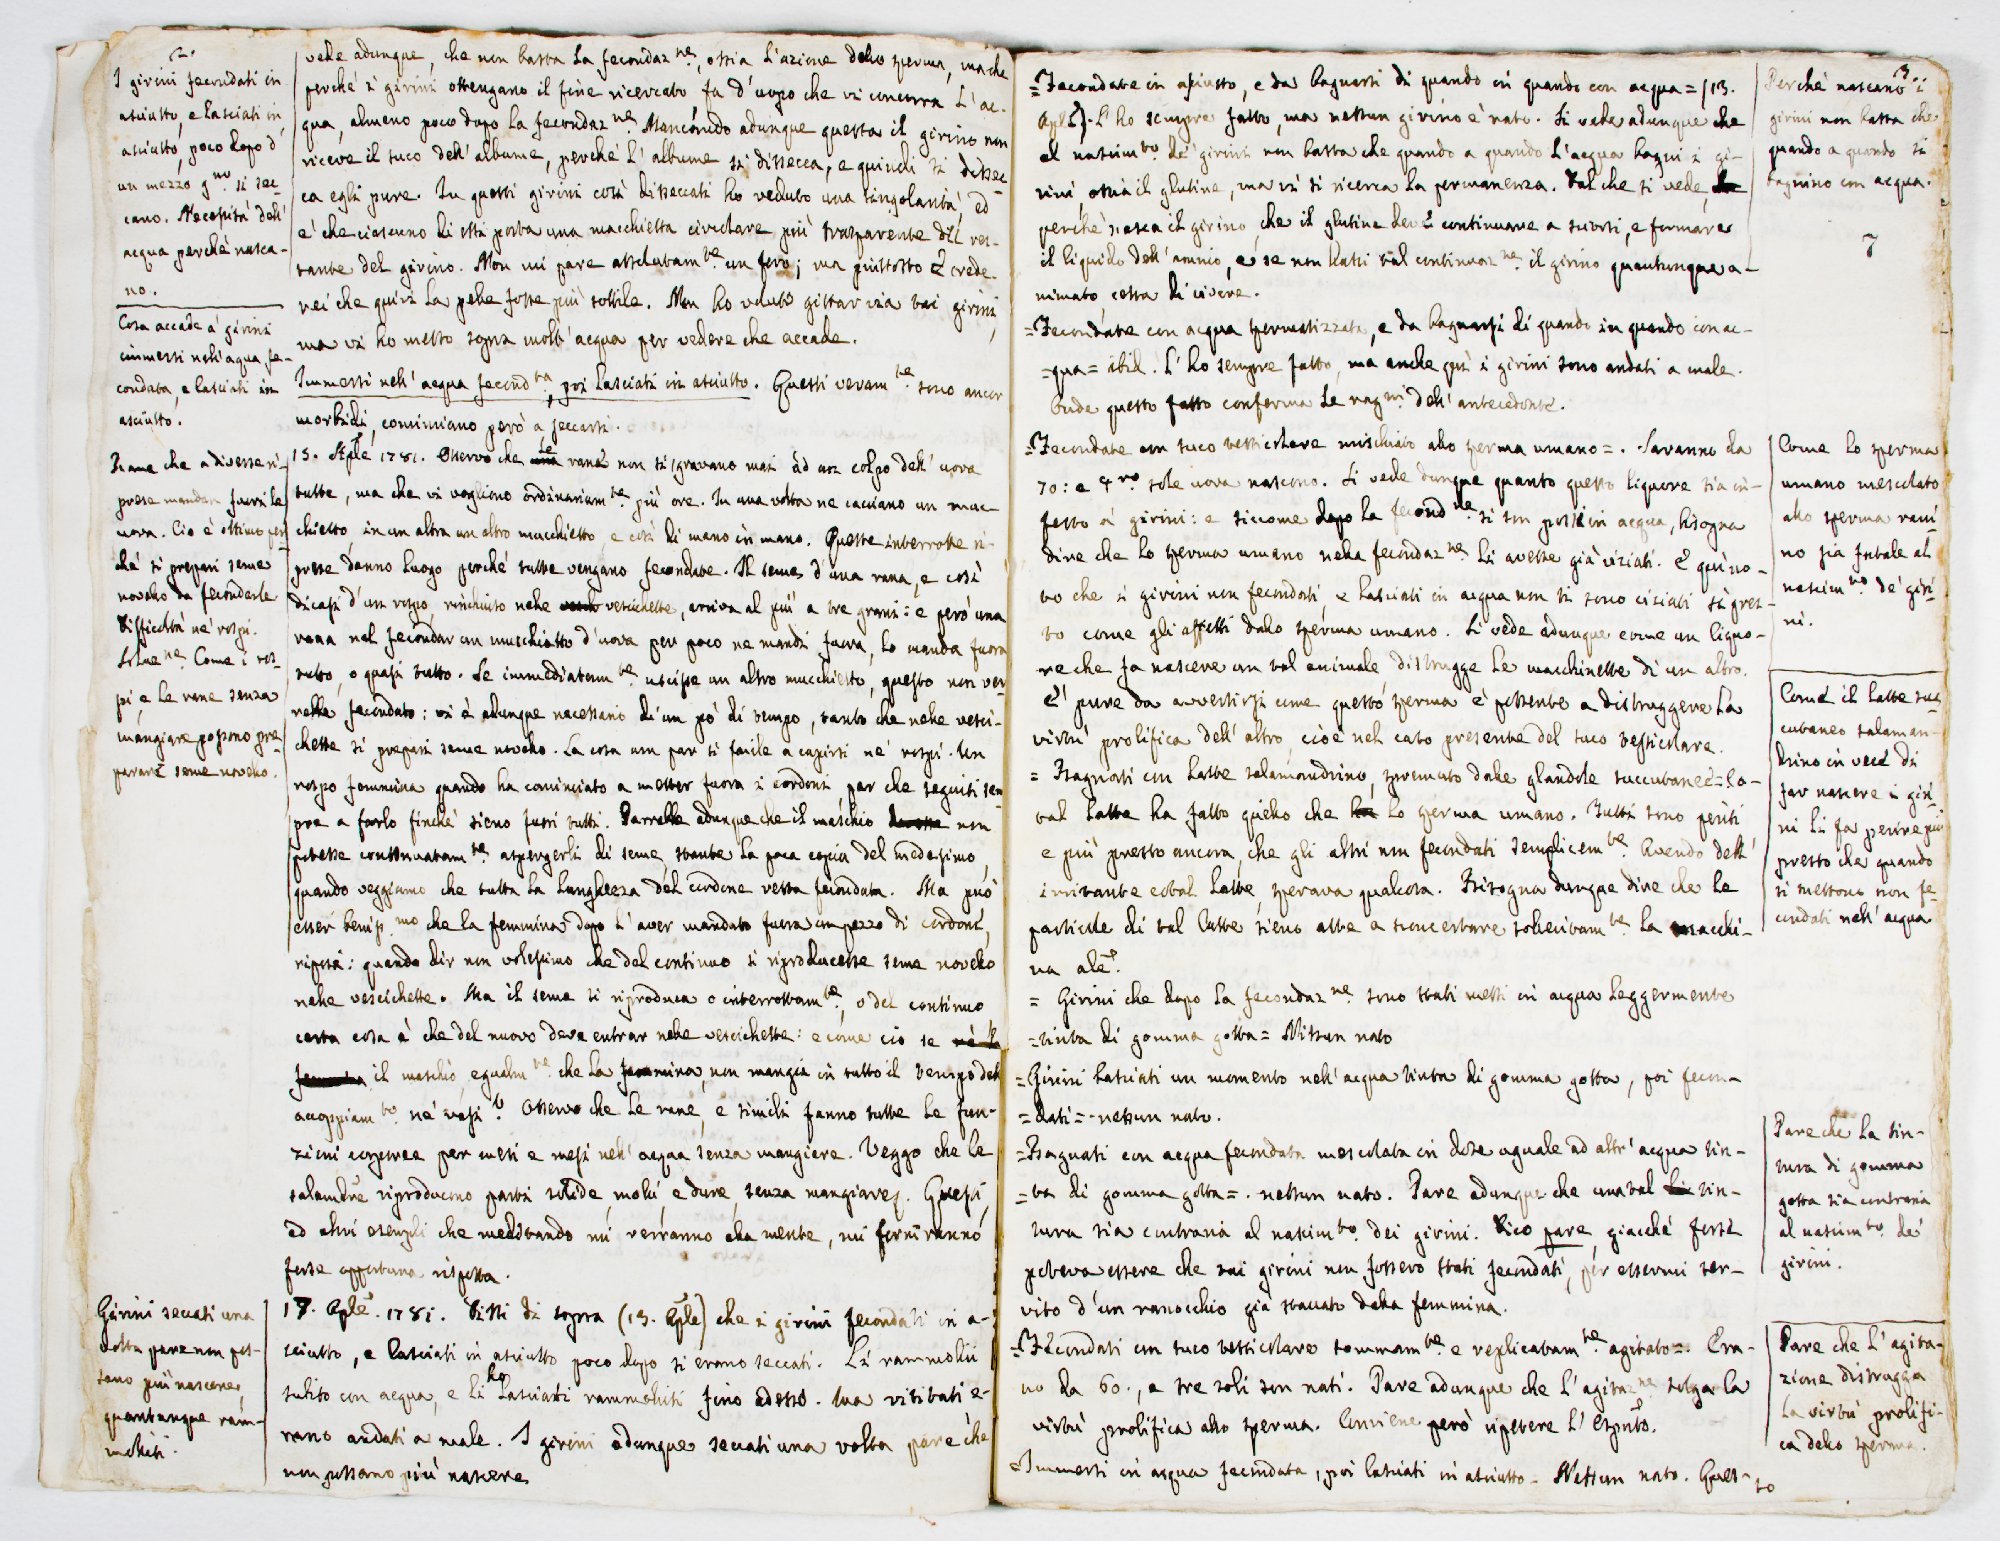 2.
I girini fecondati in
asciutto, e lasciati in
asciutto, poco dopo d'
un mezzo g.no si sec-
cano. Necessità dell'
acqua perché nasca-
no.
Cosa accade a' girini
immessi nell'acqua fe-
condata, e lasciati in
asciutto.
Rane che a diverse ri-
prese mandan fuori le
uova. Ciò è ottimo per-
ché si prepari seme
novello da feconderle
Difficoltà ne' rospi.
Soluz.ne Come i ros-
pi, e le rane senza
mangiare possono pre-
parare seme novello.
Girini seccati una
volta pare non pos-
sano più nascere,
quantunque ram-
molliti.
vede adunque, che non basta la fecondaz.ne, ossia l'azione dello sperma, ma che
perché i girini ottengano il fine ricercato, fa d'uopo che vi concorra l'ac-
qua, almeno poco dopo la fecondaz.ne Mancando adunque questa il girino non
riceve il suco dell'albume, perché l'albume si dissecca, e quindi si dissec-
ca egli pure. In questi girini così disseccati ho veduto una singolarità, ed
è che ciascuno di essi porta una macchietta circolare più trasparente del res-
tante del girino. Non mi pare assolutam.te un foro; ma piuttosto crede-
rei che quivi la pelle fosse più sottile. Non ho voluto gittar via tai girini,
ma vi ho messo sopra molt'acqua per vedere che accade.
Immessi nell'acqua fecond.ta, poi lasciati in asciutto. Questi veram.te sono ancor
morbidi, cominciano però a seccarsi.
15. Aple 1781. Osservo che le rane non si sgravano mai ad un colpo dell'uova
tutte, ma che vi vogliono ordinariam.te più ore. In una volta ne cacciano un muc-
chietto in un altra un altro mucchietto, e così di mano in mano. Queste interrotte ri-
prese danno luogo perché tutte vengano fecondate. Il seme d'una rana, e così
dicasi d'un rospo rinchiuso nelle vescichette, arriva al più a tre grani: e però una
rana nel fecondar un mucchietto d'uova per poco ne mandi fuora, lo manda fuora
tutto, o quasi tutto. Se immediatam.te uscisse un altro mucchietto, questo non ver-
rebbe fecondato: vi è adunque necessario di un pò di tempo, tanto che nelle vesci-
chette si prepari seme novello. La cosa non par sì facile a capirsi ne' rospi. Un
rospo femmina quando ha cominciato a metter fuora i cordoni par che seguiti sem-
pre a farlo finché sieno fuori tutti. Parrebbe adunque che il maschio non
potesse continuatam.te aspergerli di seme, stante la poca copia del medesimo,
quando veggiamo che tutta la lunghezza del cordone resta fecondata. Ma può
esser beniss.mo che la femmina dopo l'aver mandato fuora un pezzo di cordone,
riposi: quando dir non volessimo che del continuo si riproducesse seme novello
nelle vescichette. Ma il seme si riproduca o interrottam.te, o del continuo
certa cosa è che del nuovo deve entrar nelle vescichette: e come ciò se
il maschio, egualm.te che la femmina, non mangia in tutto il tempo dell'
accoppiam.to ne' vasi? Osservo che le rane, e simili fanno tutte le fun-
zioni corporee per mesi e mesi nell'acqua senza mangiare. Veggo che le
salamdre riproducono parti solide, molli, e dure, senza mangiare. Questi,
ed altri esempli che meditando mi verranno alla mente, mi forniranno
forse opportuna risposta.
17. Aple. 1781. Dissi di sopra (13. Aple) che i girini fecondati in a-
sciutto, e lasciati in asciutto poco dopo si erano seccati. Li rammollii
subito con acqua, e li ho lasciati rammolliti fino adesso. Ma visitati e-
rano andati a male. I girini adunque seccati una volta pare che
non possano più nascere
3.
=Fecondate in asciutto, e da bagnarsi di quando in quando con acqua=(13.
Aple). L'ho sempre fatto, ma nessun girino è nato. Si vede adunque che
al nascim.to de' girini non basta che quando a quando l'acqua bagni i gi-
rini, ossia il glutine, ma vi si ricerca la permanenza. Tal che si vede,
perché nasca il girino, che il glutine dee continuare a sciorsi, e formare
il liquido dell'amnio, e se non hassi tal continuaz.ne il girino quantunque a-
nimato cessa di vivere.
=Fecondate con acqua spermatizzata, e da bagnarsi di quando in quando con ac-
=qua= ibid. L'ho sempre fatto, ma anche qui i girini sono andati a male.
Onde questo fatto conferma le rag.ni dell'antecedente.
=Fecondate con suco testicolare mischiato allo sperma umano=. Saranno da
70: e 4.ro sole uova nascono. Si vede dunque quanto questo liquore sia in-
festo a' girini: e siccome dopo la fecond.ne si son posti in acqua, bisogna
dire che lo sperma umano nella fecondaz.ne li avesse già viziati. E qui no-
to che i girini non fecondati, e lasciati in acqua non si sono viziati sì pres-
to come gli affetti dallo sperma umano. Si vede adunque come un liquo-
re che fa nascere un tal animale distrugge le macchinette di un altro.
E' pure da avvertirsi come questo sperma è possente a distruggere la
virtù prolifica dell'altro, cioè nel caso presente del suco testicolare.
= Bagnati con latte salamandrino, spremuto dalle glandole succutanee= Co-
tal latte ha fatto quello che lo sperma umano. Tutti sono periti
e più presto ancora, che gli altri non fecondati semplicem.te. Avendo dell'
irritante cotal latte, sperava qualcosa. Bisogna dunque dire che le
particole di tal latte sieno atte a sconcertare sollecitam.te la macchi-
na ale.
= Girini che dopo la fecondaz.ne sono stati messi in acqua leggermente
=tinta di gomma gotta= Nissun nato
=Girini lasciati un momento nell'acqua tinta di gomma gotta, poi fecon-
=dati=- nessun nato.
=Bagnati con acqua fecondata mescolata in dose uguale ad altr'acqua tin-
=ta di gomma gotta=. nessun nato. Pare adunque che una tal tin-
tura sia contraria al nascim.to dei girini. Dico pare, giacché forse
poteva essere che tai girini non fossero stati fecondati, per essermi ser-
vito d'un ranocchio già staccato dalla femmina.
=Fecondati con suco testicolare sommam.te e replicatam.te agitato=. Era-
no da 60., e tre soli son nati. Pare adunque che l'agitaz.ne tolga la
virtù prolifica allo sperma. Conviene però ripetere l'esprto.
=Immersi in acqua fecondata, poi lasciati in asciutto- Nessun nato. Ques-
to
Perché nascano i
girini non basta che
quando a quando si
bagnino con acqua.
7
Come lo sperma
umano mescolato
allo sperma rani-
no sia fatale al
nascim.to de' giri-
ni.
Come il latte suc-
cutaneo salaman-
drino in vece di
far nascere i giri-
ni li fa perire più
presto che quando
si mettono non fe-
condati nell'acqua
Pare che la tin-
tura di gomma
gotta sia contraria
al nascim.to de'
girini.
Pare che l'agita-
zione distrugga
la virtù prolifi-
ca dello sperma.